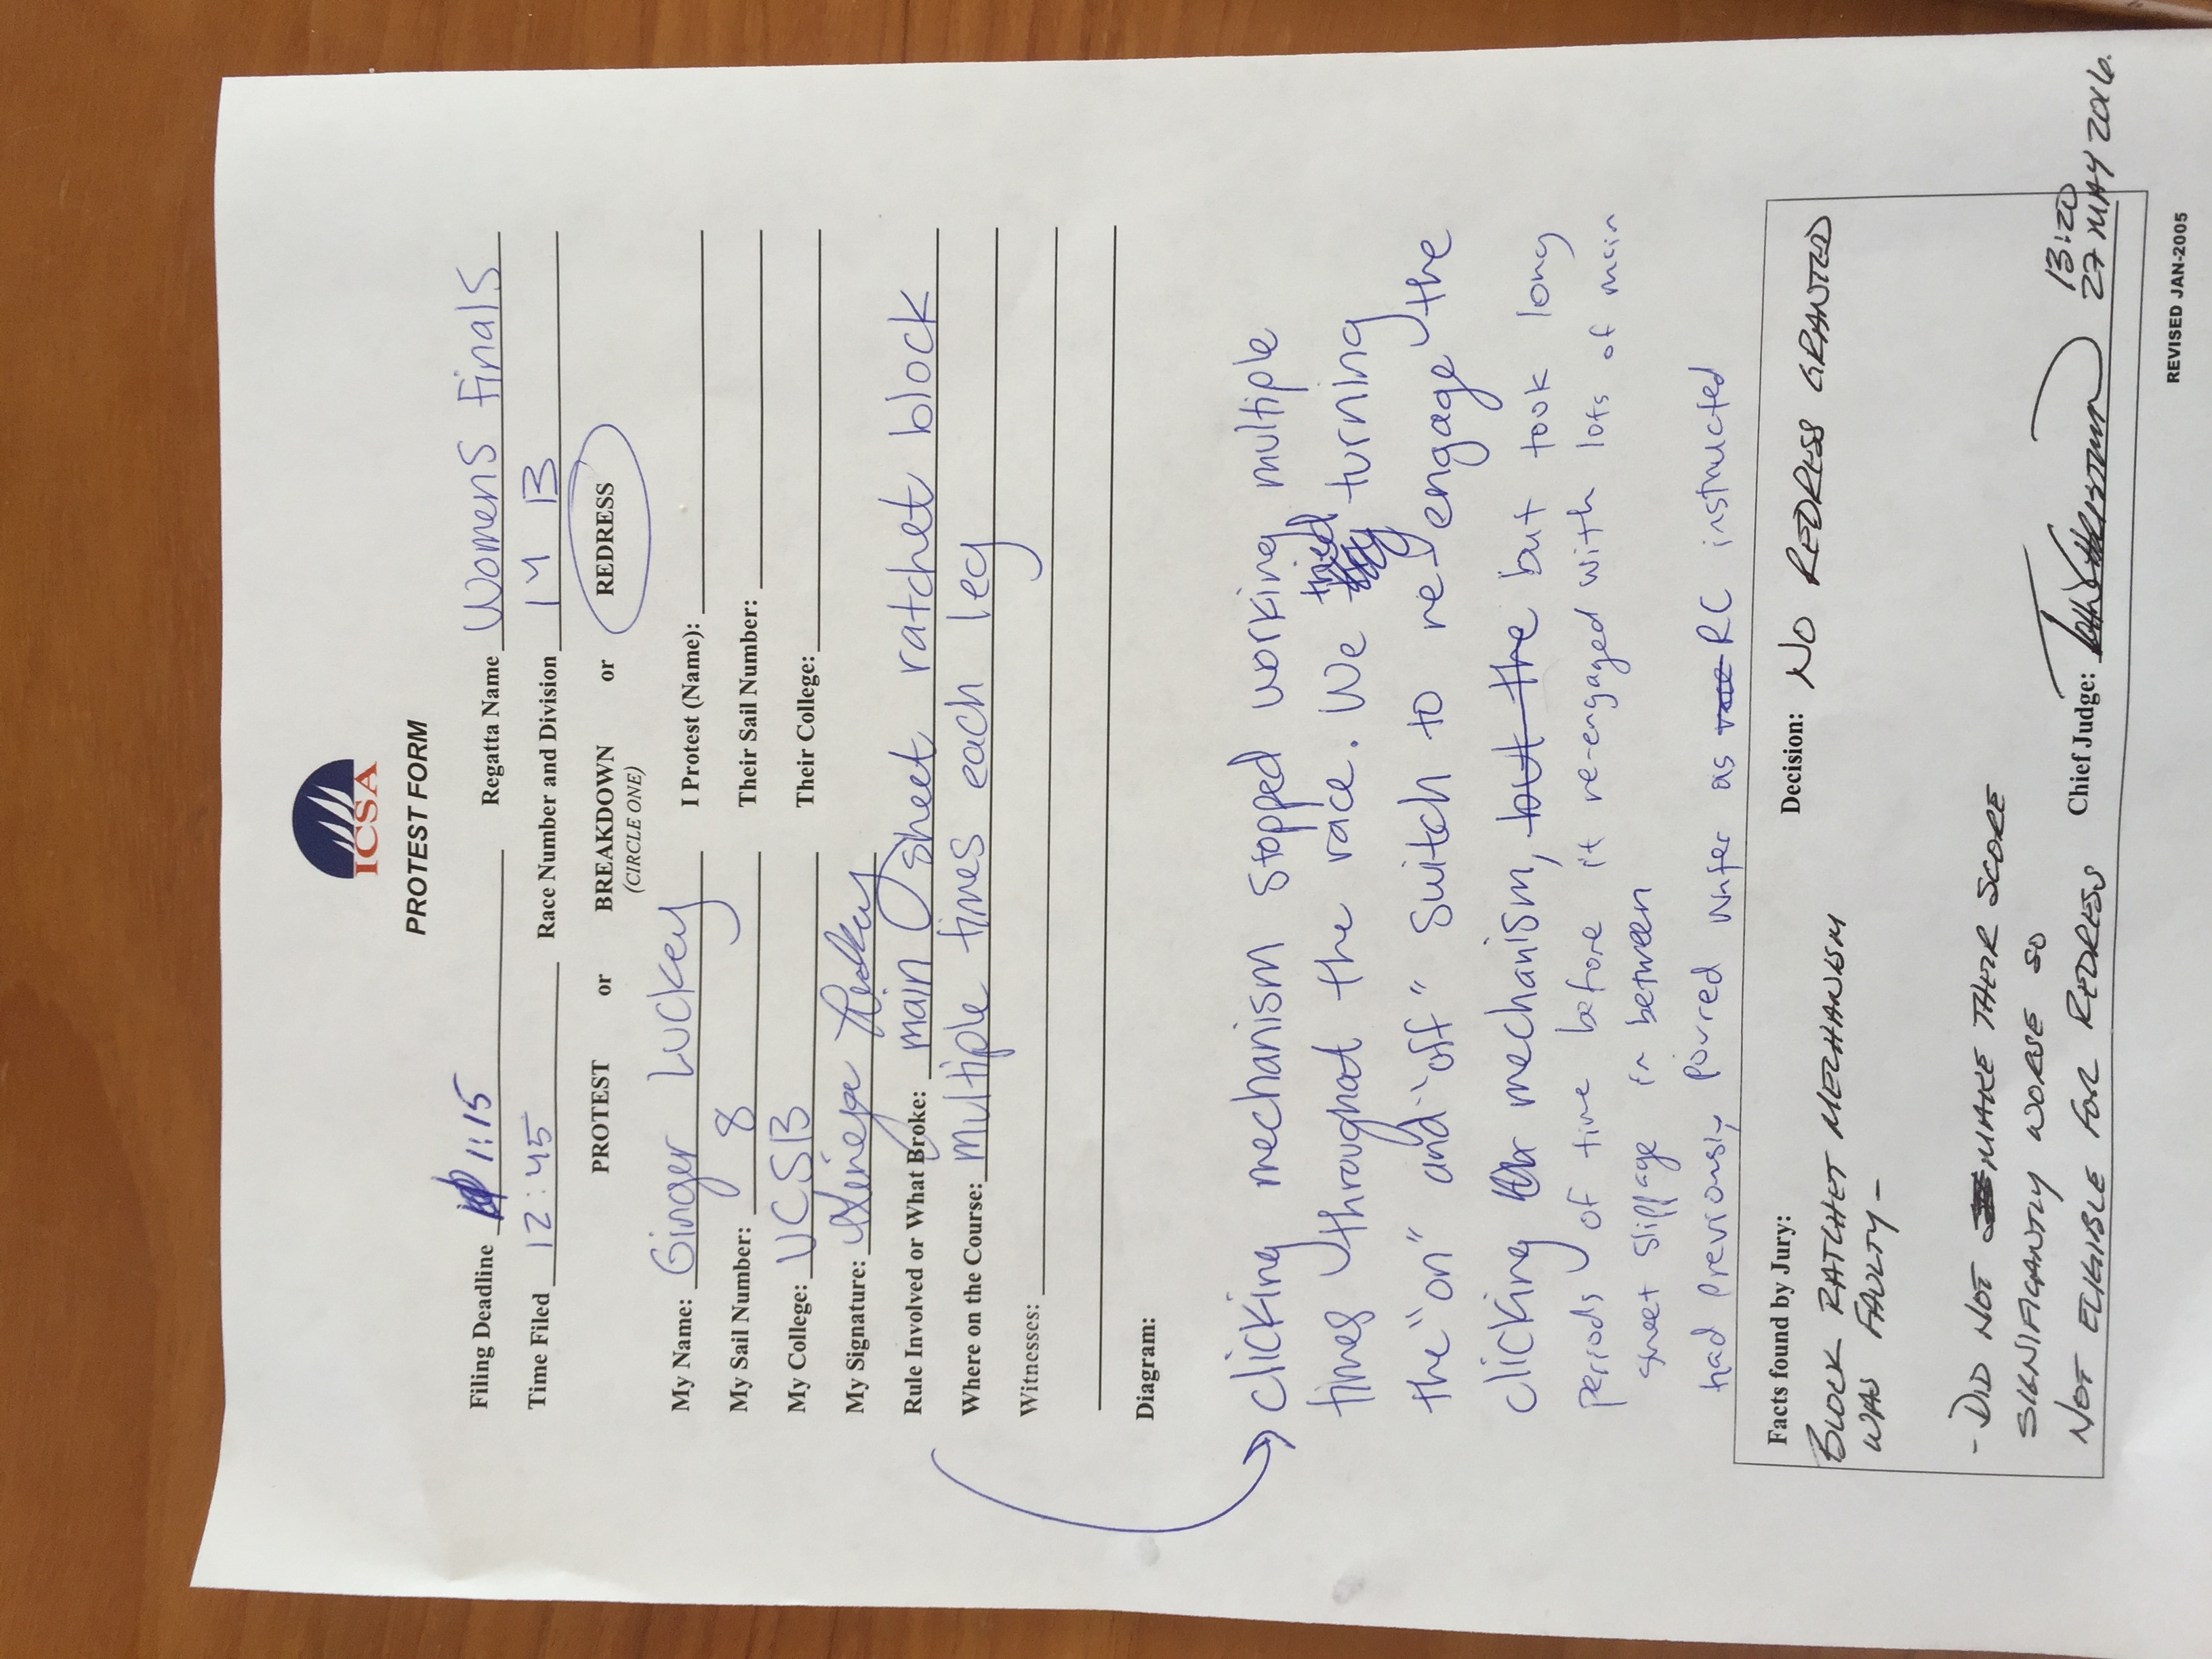 ICSA
PROTEST FORM
Filing Deadline 1:15 Regatta Name Womens Finals
Time Filed 12:45 Race Number and Division 14 B
PROTEST or BREAKDOWN or REDRESS
(CIRCLE ONE)
My Name: Ginger Luckey I Protest (Name):
My Sail Number: 8 Their Sail Number:
My College: UCSB Their College:
My Signature: Luckey
Rule Involved or What Broke: main sheet ratchet block
Where on the Course: multiple times each leg
Witnesses:
Diagram:
clicking mechanism stopped working multiple
times throughout the race. We tried turning
the "on" and "off" switch to re-engage the
clicking mechanism, but the but took long
periods of time before it re-engaged with lots of main
sheet slippage in between
had previously poured water as RC instructed
Facts found by Jury: Decision: NO REDRESS GRANTED
BLOCK RATCHET MECHANISM
WAS FAULTY -
- DID NOT MAKE THER SCORE
SIGNIFICANTLY WORSE SO
NOT ELIGIBLE FOR REDRESS
Chief Judge: 13:20
27 MAY 2016.
REVISED JAN-2005